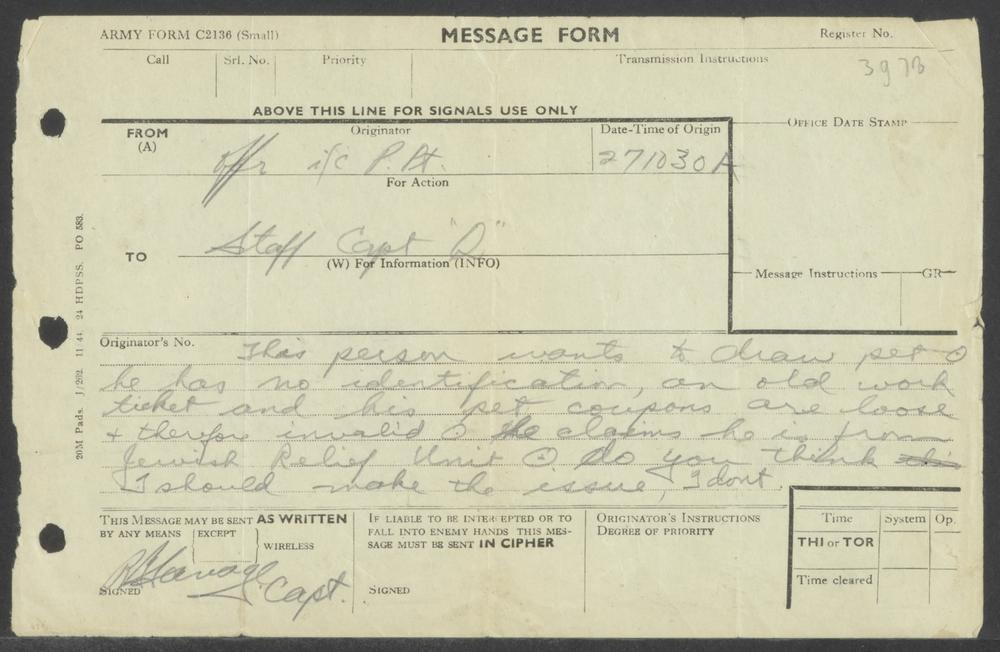 ARMY FORM C2136 (Small)
MESSAGE FORM
Register No.
Call
Srl. No.
Priority
Transmission Instructions
397B
ABOVE THIS LINE FOR SIGNALS USE ONLY
FROM
(A)
Originator
Date-Time of Origin
OFFICE DATE STAMP
Offr i/c P. Pt.
271030A
For Action
TO
Staff Capt "Q"
(W) For Information (INFO)
Message Instructions
GR
Originator's No.
This person wants to draw pet ⊙
he has no identification, an old work
ticket and his pet coupons are loose
+ therefore invalid ⊙ He claims he is from
Jewish Relief Unit ⊙ Do you think
I should make the issue, I dont.
THIS MESSAGE MAY BE SENT AS WRITTEN
BY ANY MEANS
EXCEPT
WIRELESS
SIGNED
Capt.
IF LIABLE TO BE INTERCEPTED OR TO
FALL INTO ENEMY HANDS THIS MES-
SAGE MUST BE SENT IN CIPHER
SIGNED
ORIGINATOR'S INSTRUCTIONS
DEGREE OF PRIORITY
Time
System
Op.
THI or TOR
Time cleared
20M Pads. J/292. 11 44. 24 HDPSS. PO 583.